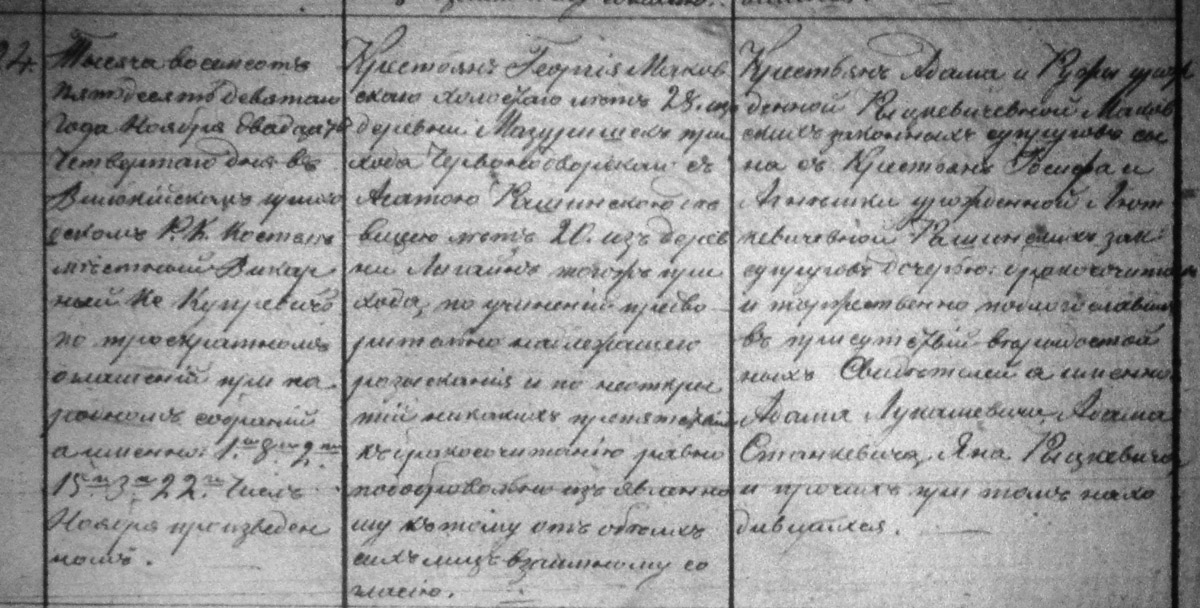 24.
Тысяча восемсотъ
пятдесятъ девятаго
года Ноября двадцать
четвертаго дня въ
Вилькійскомъ приход
скомъ Р. К. Костелѣ
мѣстный Викар
ный Кс Купревичъ
по троекратномъ
оглашеній при на
родномъ собраній
а именно: 1. го 8 го 2. го
15 го 3 го 22. го Числъ
Ноября произведен
номъ.
Крестьянъ Георгія Маков
скаго холостаго лѣтъ 28. изъ
деревни Мазуришекъ при
хода Червонодворскаго съ
Агатою Рашинскою дѣ
вицею лѣтъ 20. изъ дерев
ни Лигайнъ тогожъ при
хода, по учиненій предво
рительно надлежащаго
розысканія и по неоткры
тій никакихъ препятствій
къ бракосочитанію равно
по добровольно изъявленно
му къ тому отъ обоихъ
сихъ лицъ взаимному со
гласію.
Крестьянъ Адама и Руфи урож
денной Рыцкевичевной Маков
скихъ законныхъ супруговъ сы
на съ Крестьянъ Іосифа и
Агнешки урожденной Лют
кевичевной Рашинскихъ зак:
супруговъ дочерью: бракосочиталъ
и торжественно поблагославилъ
въ присутствій вѣродостой
ныхъ Свидѣтелей а именно
Адама Лукашевича, Адама
Станкевича, Яна Рыцкевича
и прочихъ при томъ нахо
дившихся.